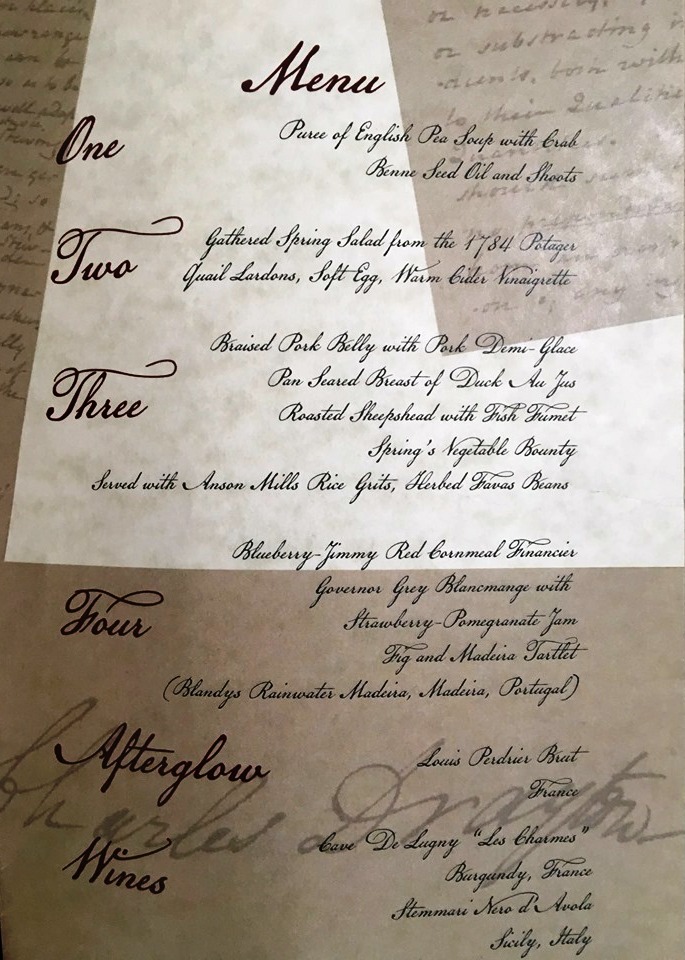 Menu
One
Puree of English Pea Soup with Crab
Benne Seed Oil and Shoots
Two
Gathered Spring Salad from the 1784 Potager
Quail Lardons, Soft Egg, Warm Cider Vinaigrette
Three
Braised Pork Belly with Pork Demi-Glace
Pan Seared Breast of Duck Au Jus
Roasted Sheepshead with Fish Fumet
Spring's Vegetable Bounty
Served with Anson Mills Rice Grits, Herbed Favas Beans
Four
Blueberry-Jimmy Red Cornmeal Financier
Governor Grey Blancmange with
Strawberry-Pomegranate Jam
Fig and Madeira Tartlet
(Blandys Rainwater Madeira, Madeira, Portugal)
Afterglow
Louis Perdrier Brut
France
Charles Drayton
Wines
Cave De Lugny "Les Charmes"
Burgundy, France
Stemmari Nero d'Avola
Sicily, Italy
or necessary,
or substracting
both with
to their Qualities